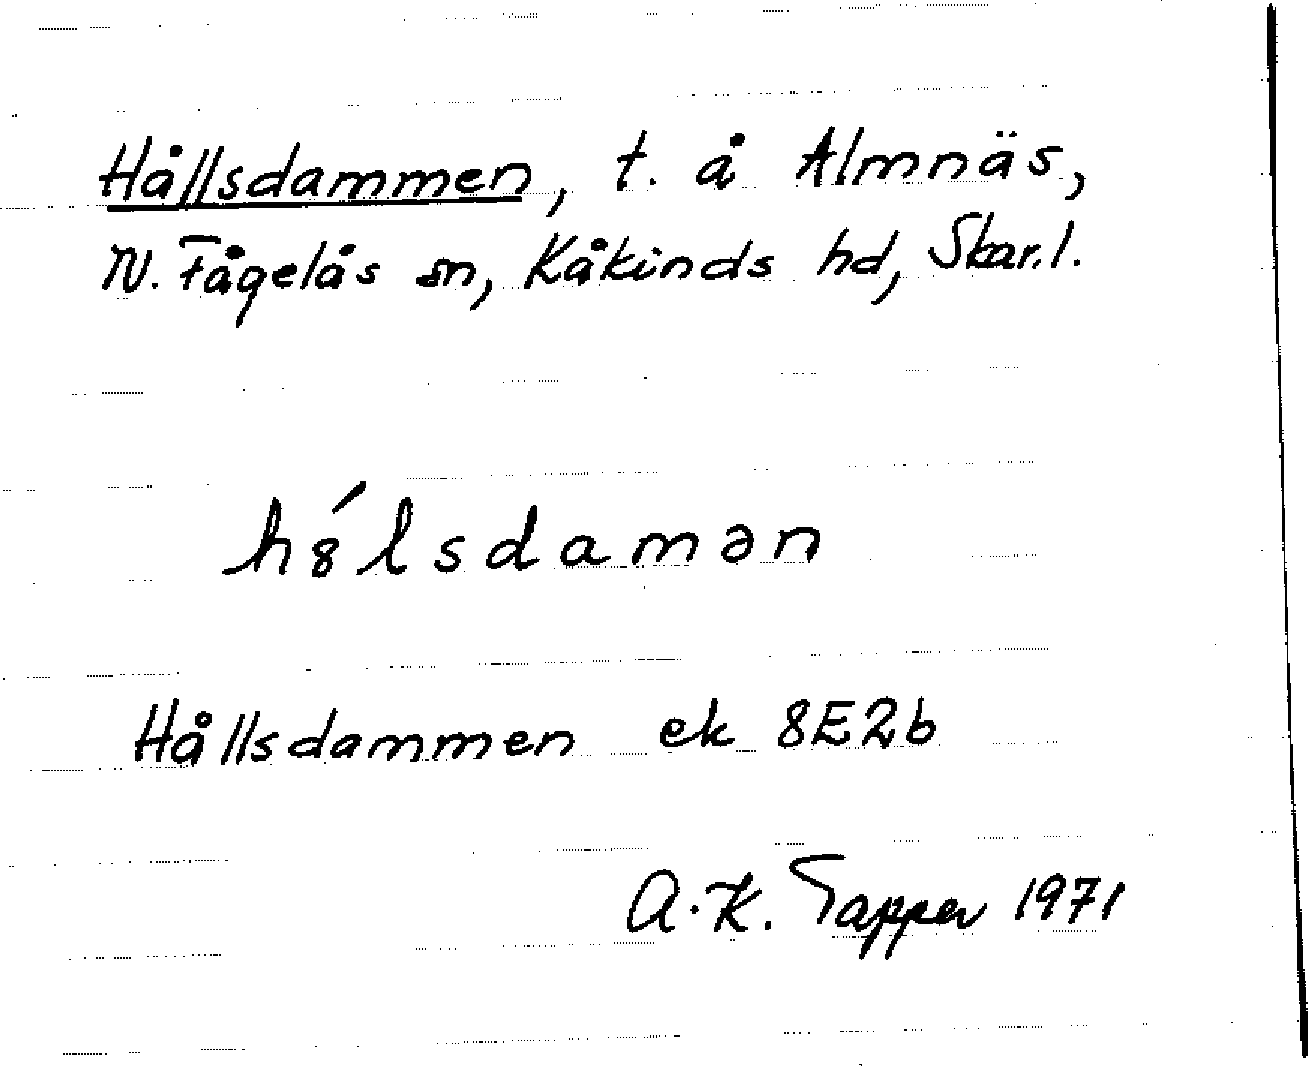 Hållsdammen, t. å Almnäs,
N. Fågelås sn, Kåkinds hd, Skar.l.
hȣ́lsdamən
Hållsdammen ek 8E2b
A.K. Tapper 1971